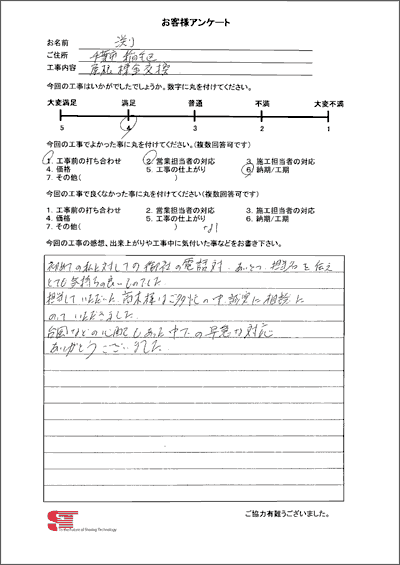 お客様アンケート
お名前
ご住所 千葉市 稲毛区
工事内容 屋根 板金交換
今回の工事はいかがでしたでしょうか。数字に丸を付けてください。
大変満足 満足 普通 不満 大変不満
5 4 3 2 1
今回の工事でよかった事に丸を付けてください。(複数回答可です)
1. 工事前の打ち合わせ 2. 営業担当者の対応 3. 施工担当者の対応
4. 価格 5. 工事の仕上がり 6. 納期/工期
7. その他( )
今回の工事で良くなかった事に丸を付けてください(複数回答可です)
1. 工事前の打ち合わせ 2. 営業担当者の対応 3. 施工担当者の対応
4. 価格 5. 工事の仕上がり 6. 納期/工期
7. その他( ) なし
今回の工事の感想、出来上がりや工事中に気付いた事などをお書き下さい。
初めての私に対しての御社の電話対 あいさつ 担当を伝え
とても気持ちの良いものでした
担当していただいた 高木様はご多忙の中、誠実に相談に
のっていただきました
台風などの心配もあった中での早急な対応
ありがとうございました。
ST
To the Future of Sheeting Technology
ご協力有難うございました。